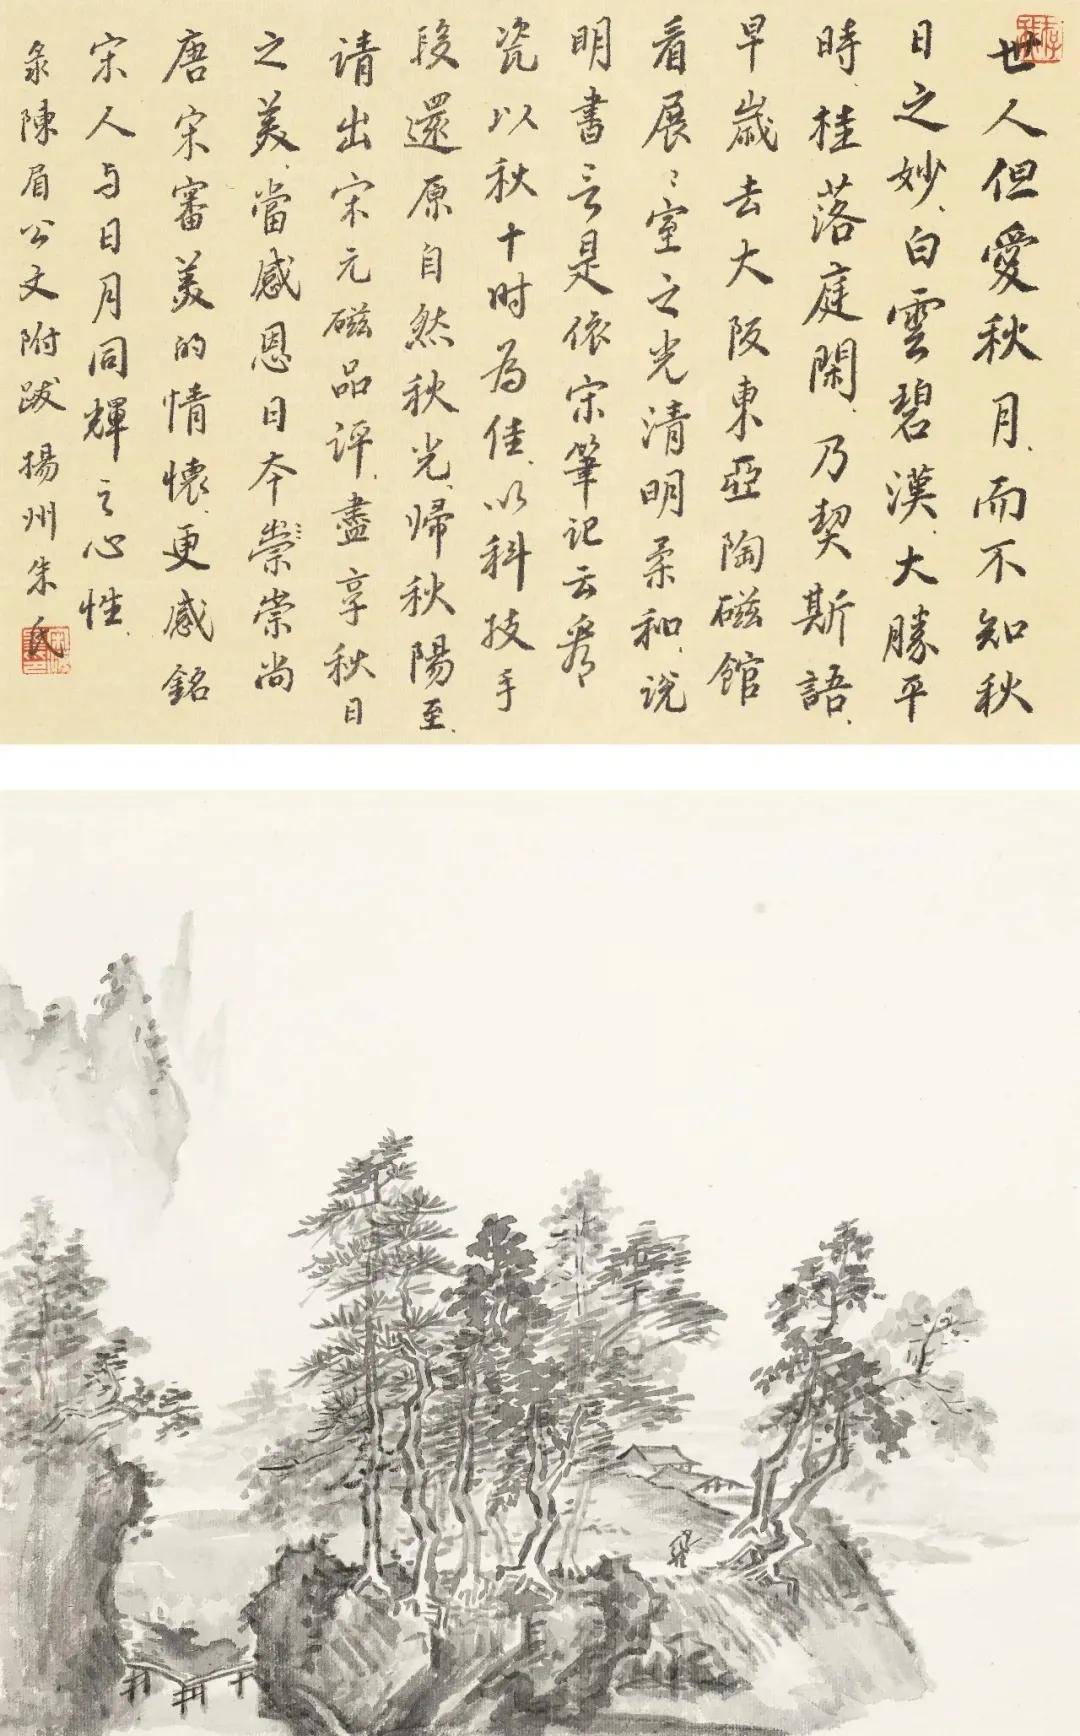 世人但愛秋月、而不知秋
日之妙、白雲碧漢、大勝平
時、桂落庭閑、乃契斯語、
早歲去大阪東亞陶磁館
看展、展室之光清明柔和、说
明書言是依宋筆記云看
瓷以秋十时為佳、以科技手
段還原自然秋光、歸秋陽至、
请出宋元磁品评、盡享秋日
之美、當感恩日本崇崇尚
唐宋審美的情懷、更感銘
宋人与日月同輝之心性、
彔陳眉公文附跋揚州朱氏